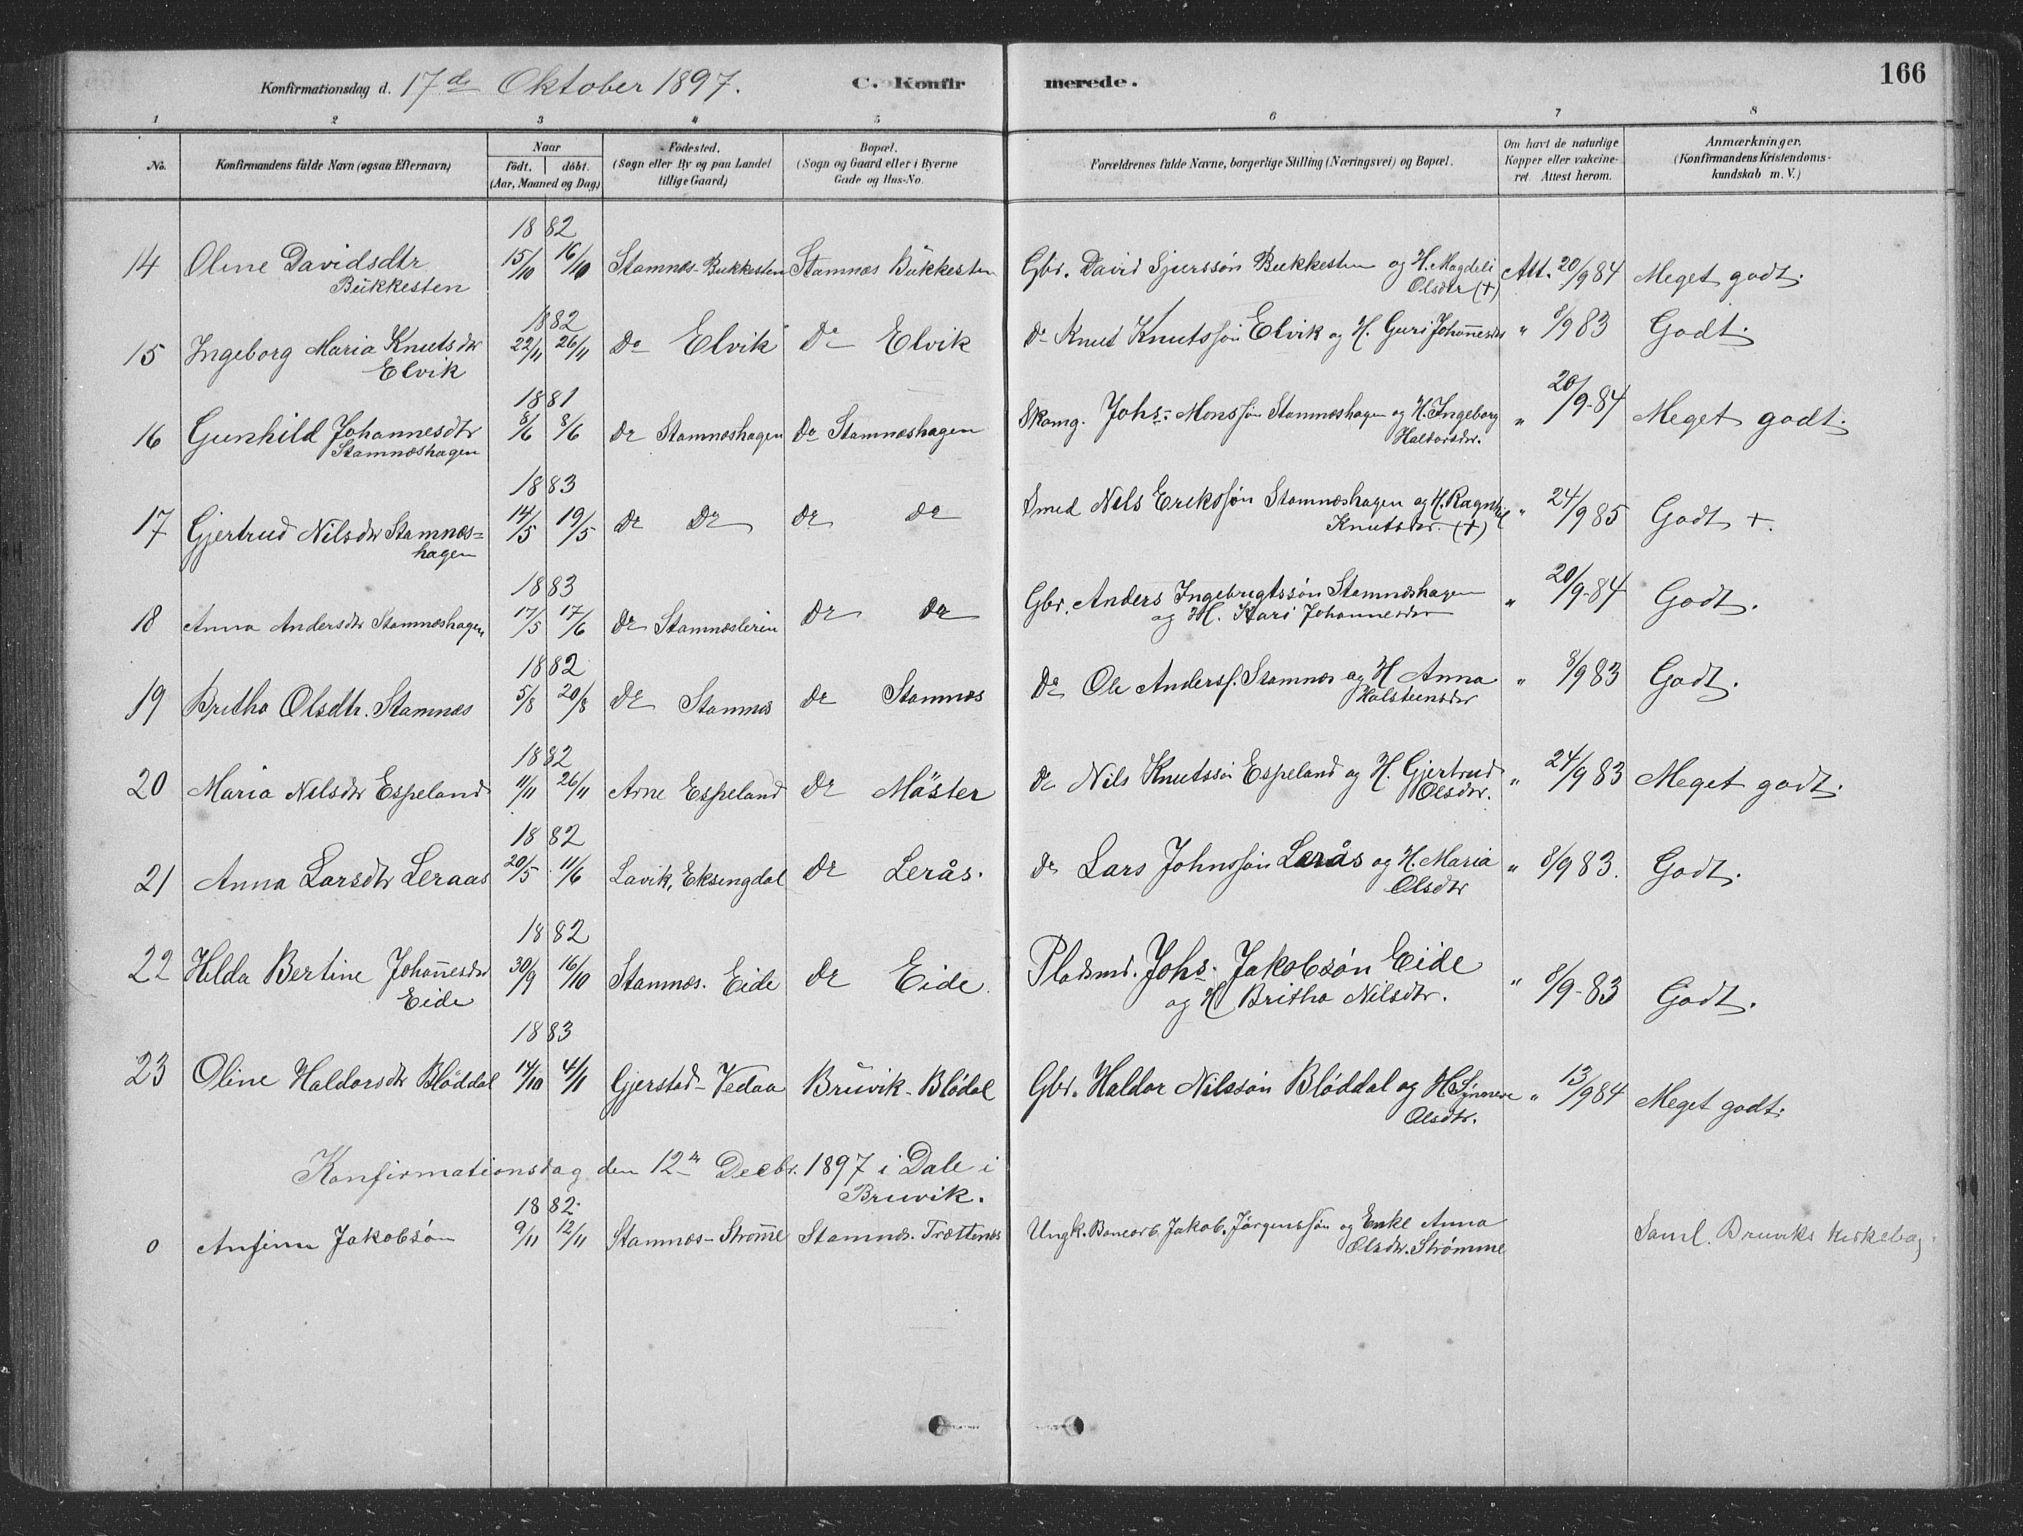 Konfirmationsdag d. 17de Oktober 1897. C. Konfirmerede. 166
1 2 3 4 5 6 7 8
No. Konfirmandens fulde Navn (ogsaa Efternavn) Naar født. døbt. (Aar, Maaned og Dag) Fødested. (Sogn eller By og paa Landet tillige Gaard) Bopæl. (Sogn og Gaard eller i Byerne Gade og Hus-No. Forældrenes fulde Navne, borgerlige Stilling (Næringsvei) og Bopæl. Om havt de naturlige Kopper eller vakcineret Attest herom. Anmærkninger. (Konfirmandens Kristendomskundskab m. V.)
1882
14 Oline Davidsdtr 15/10 16/10 Stamnæs-Bukkesten Stamnæs Bukkesten Gbr. David Sjurssøn Bukkesten og H. Magdeli Att. 20/9 84 Meget godt.
Bukkesten Olsdtr (+)
1882
15 Ingeborg Maria Knutsdtr 22/11 26/11 Do Elvik Do Elvik Do Knut Knutssøn Elvik og H. Guri Johannesdtr " 8/9 83 Godt.
Elvik
1881
16 Gunhild Johannesdtr 8/6 8/6 Do Stamnæshagen Do Stamnæshagen Skomg. Johs. Monssøn Stamnæshagen og H. Ingeborg " 20/9-84 Meget godt.
Stamnæshagen Haldorsdtr.
1883
17 Gjertrud Nilsdtr Stamnæs= 14/5 19/5 Do Do Do Do Smed Nils Erikssøn Stamnæshagen og H. Ragnhil " 24/9 85 Godt +.
hagen Knutsdtr. (+)
1883
18 Anna Andersdtr Stamnæshagen 17/5 17/6 Do Stamnæsleren Do Do Gbr. Anders Ingebrigtssøn Stamnæshagen " 20/9-84 Godt.
og H. Kari Johannesdtr
1882
19 Britha Olsdtr. Stamnæs 5/8 20/8 Do Stamnæs Do Stamnæs Do Ole Anderss. Stamnæs og H Anna " 8/9 83 Godt.
Halsteensdtr
1882
20 Maria Nilsdtr Espeland 11/11 26/11 Arne Espeland Do Mäster Do Nils Knutssøn Espeland og H. Gjertrud " 24/9 83 Meget godt.
Olsdtr.
1882
21 Anna Larsdtr Leraas 20/5 11/6 Lavik, Eksingdal Do Lerås. Do Lars Johnssøn Lerås og H. Maria " 8/9 83. Godt.
Olsdtr
1882
22 Hilda Bertine Johannesdtr 30/9 16/10 Stamnæs. Eide Do Eide. Pladsmd. Johs. Jakobsøn Eide " 8/9-83 Godt.
Eide og H Britha Nilsdtr.
1883
23 Oline Haldorsdtr Bløddal 14/10 4/11 Gjerstad-Vedaa Bruvik-Blødal Gbr. Haldor Nilssøn Bløddal og H Synneve " 13/9 84 Meget godt.
Olsdtr.
Konfirmationsdag den 12te Decbr. 1897 i Dale i
Bruvik.
1882.
0 Anfinn Jakobsøn 9/11 12/11 Stamnæs-Strømme Stamnæs. Trættenes Ungk. Jakob Jørgenssøn og Enke Anna Saml. Bruviks Kirkebog.
Olsdtr. Strømme